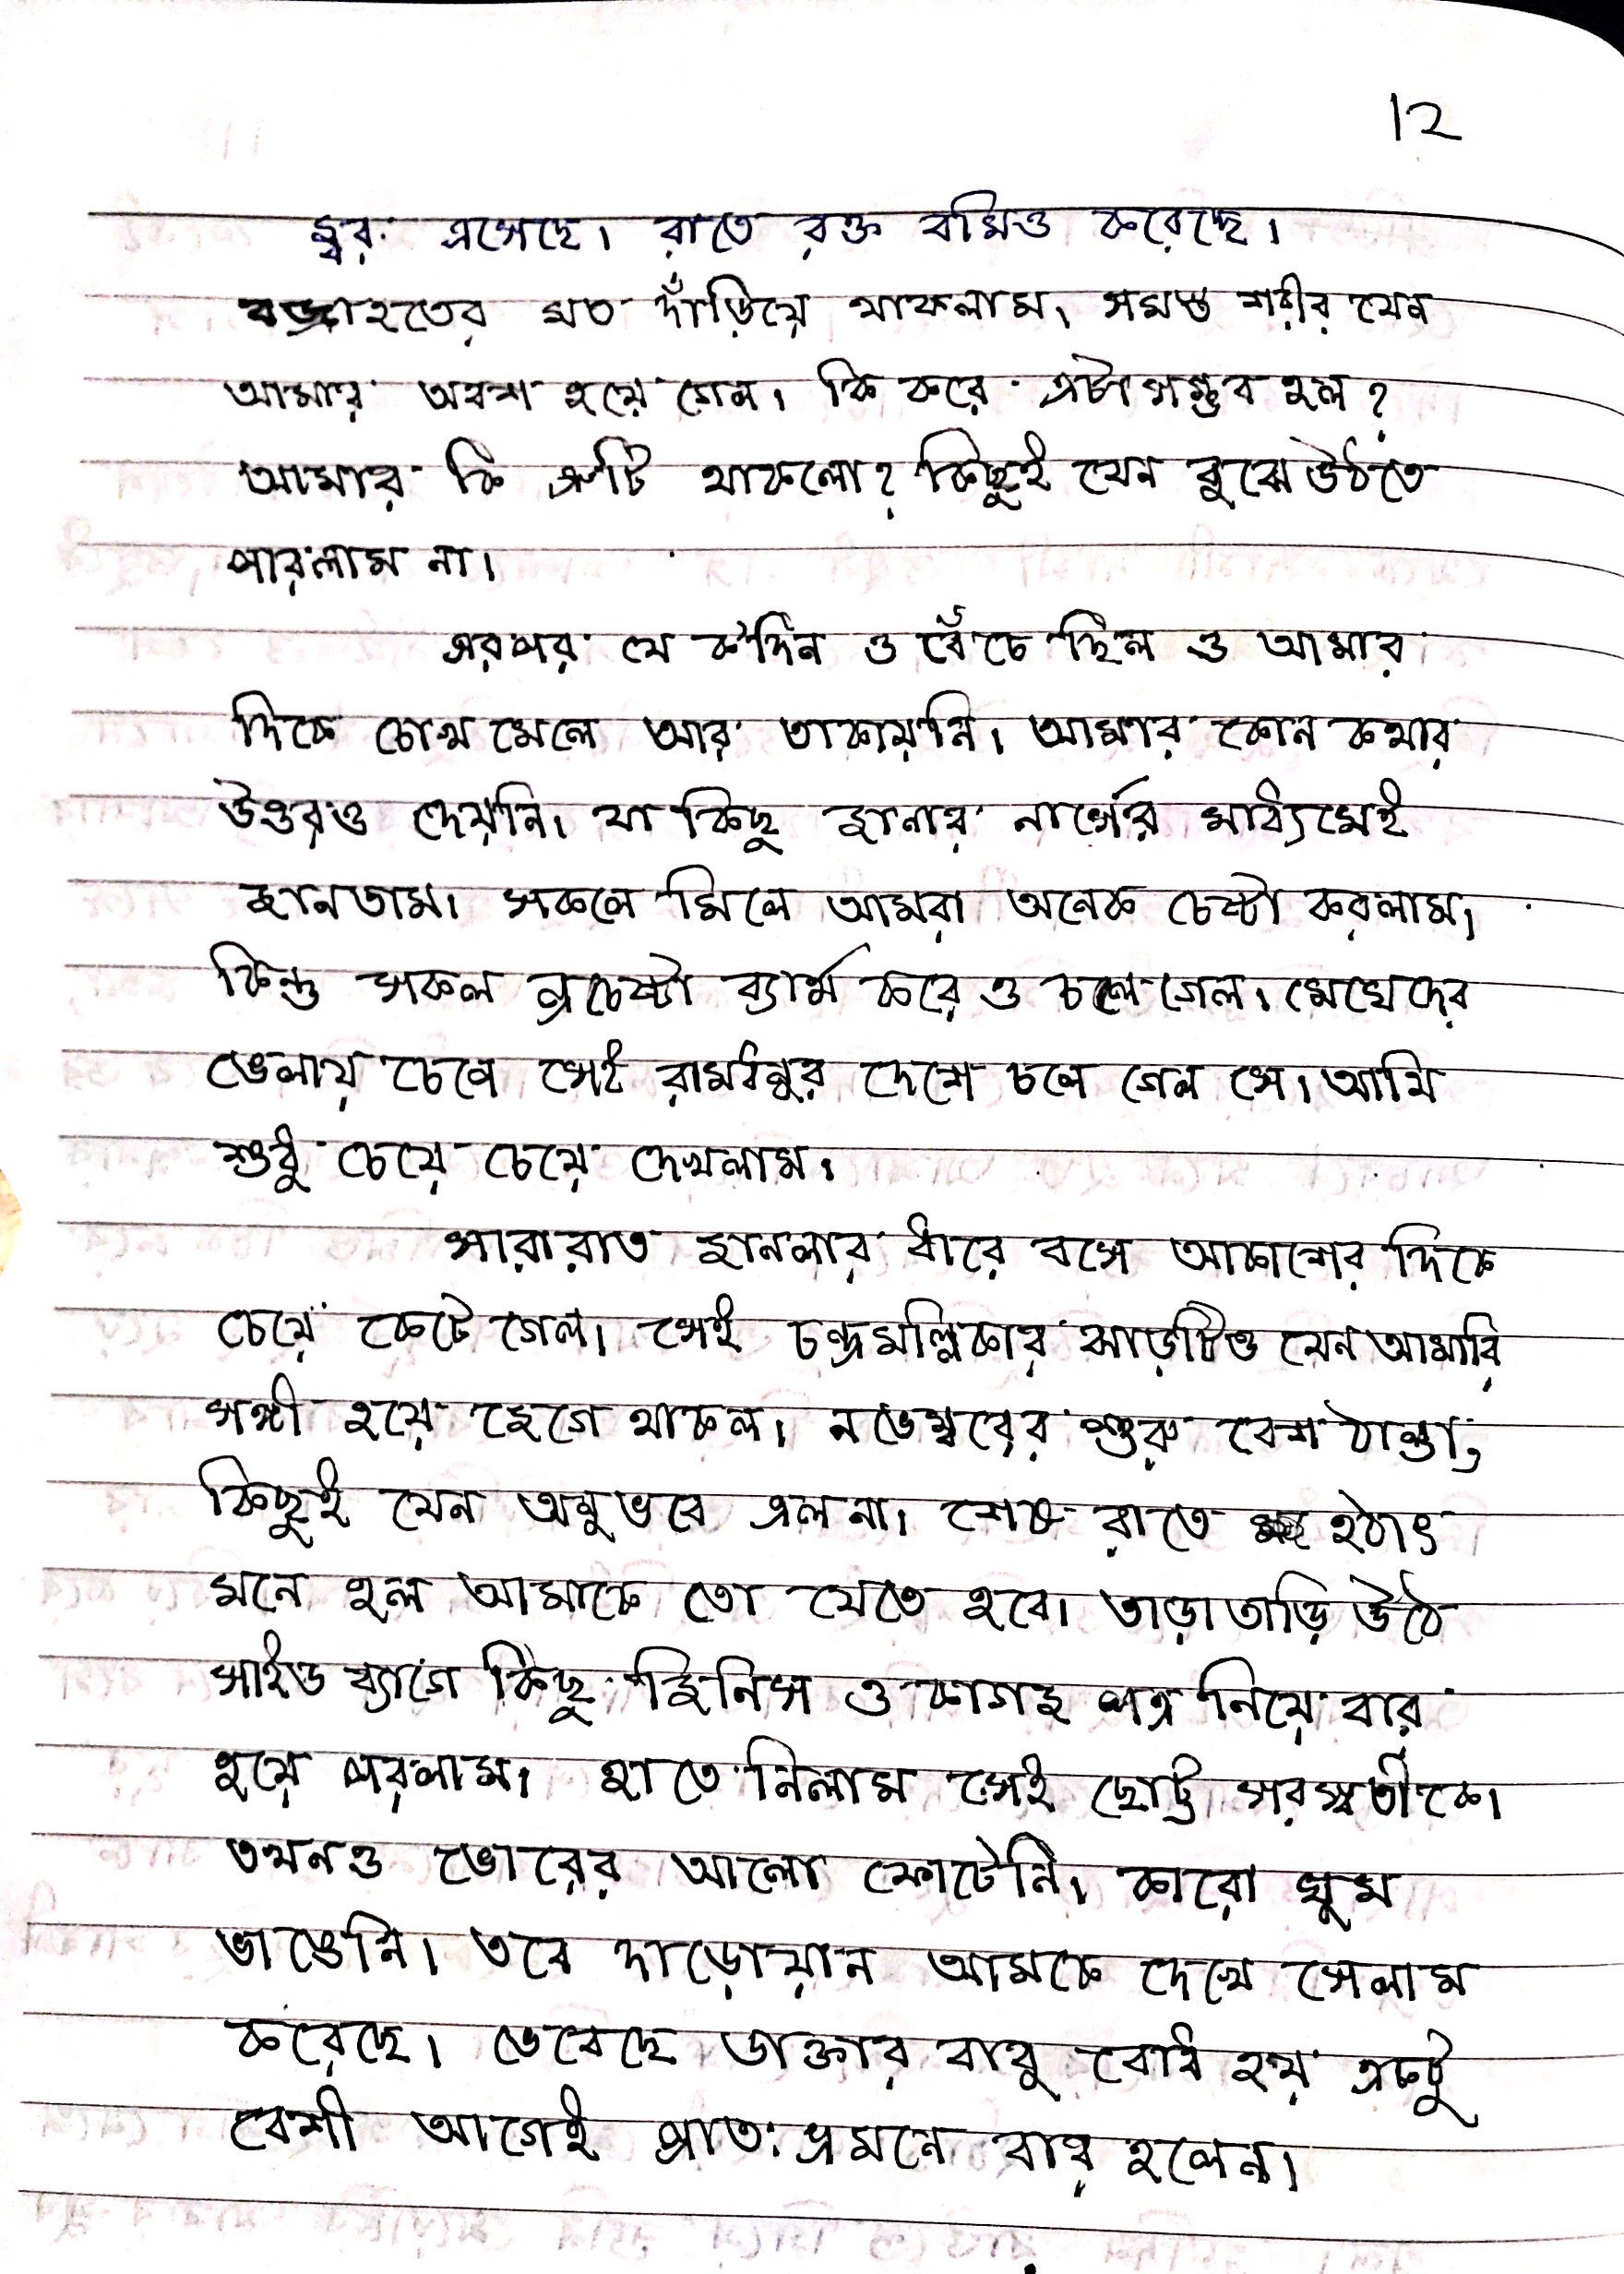 12
জ্বর এসেছে। রাতে রক্ত বমিও করেছে।
বজ্রাহতের মত দাঁড়িয়ে থাকলাম। সমস্ত শরীর যেন
আমার অবশ হয়ে গেল। কি করে এটা সম্ভব হল?
আমার কি ত্রুটি থাকলো? কিছুই যেন বুঝে উঠতে
পারলাম না।
এরপর যে ক'দিন ও বেঁচে ছিল ও আমার
দিকে চোখ মেলে আর তাকায়নি। আমার কোন কথার
উত্তরও দেয়নি। যা কিছু জানার নার্সের মাধ্যমেই
জানতাম। সকলে মিলে আমরা অনেক চেষ্টা করলাম।
কিন্তু সকল প্রচেষ্টা ব্যার্থ করে ও চলে গেল। মেঘেদের
ভেলায় চেপে সেই রামধনুর দেশে চলে গেল সে। আমি
শুধু চেয়ে চেয়ে দেখলাম।
সারারাত জানলার ধারে বসে আকাশের দিকে
চেয়ে কেটে গেল। সেই চন্দ্রমল্লিকার ঝাড়টিও যেন আমারি
সঙ্গী হয়ে জেগে থাকল। নভেম্বরের শুরু বেশ ঠাণ্ডা,
কিছুই যেন অনুভবে এল না। শেষ রাতে হঠাৎ
মনে হল আমাকে তো যেতে হবে। তাড়াতাড়ি উঠে
সাইড ব্যাগে কিছু জিনিস ও কাগজ পত্র নিয়ে বার
হয়ে পরলাম। হাতে নিলাম সেই ছোট্ট সরস্বতীকে।
তখনও ভোরের আলো ফোটেনি। কারো ঘুম
ভাঙেনি। তবে দাড়োয়ান আমকে দেখে সেলাম
করেছে। ভেবেছে ডাক্তার বাবু বোধ হয় একটু
বেশী আগেই প্রাতঃভ্রমনে বার হলেন।